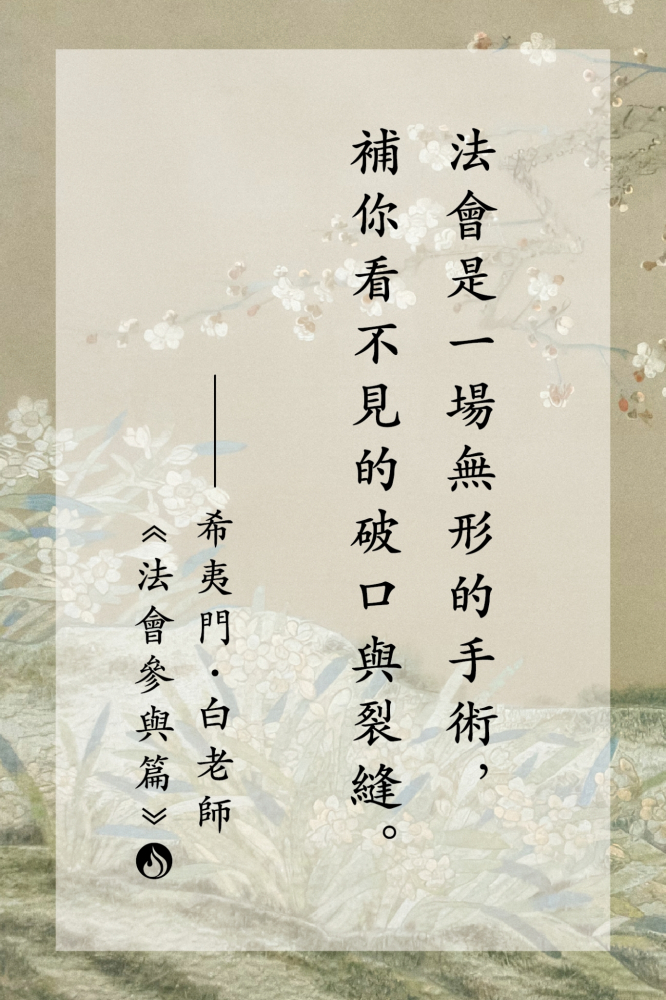 法會是一場無形的手術，
補你看不見的破口與裂縫。
——希夷門・白老師
《法會參與篇》